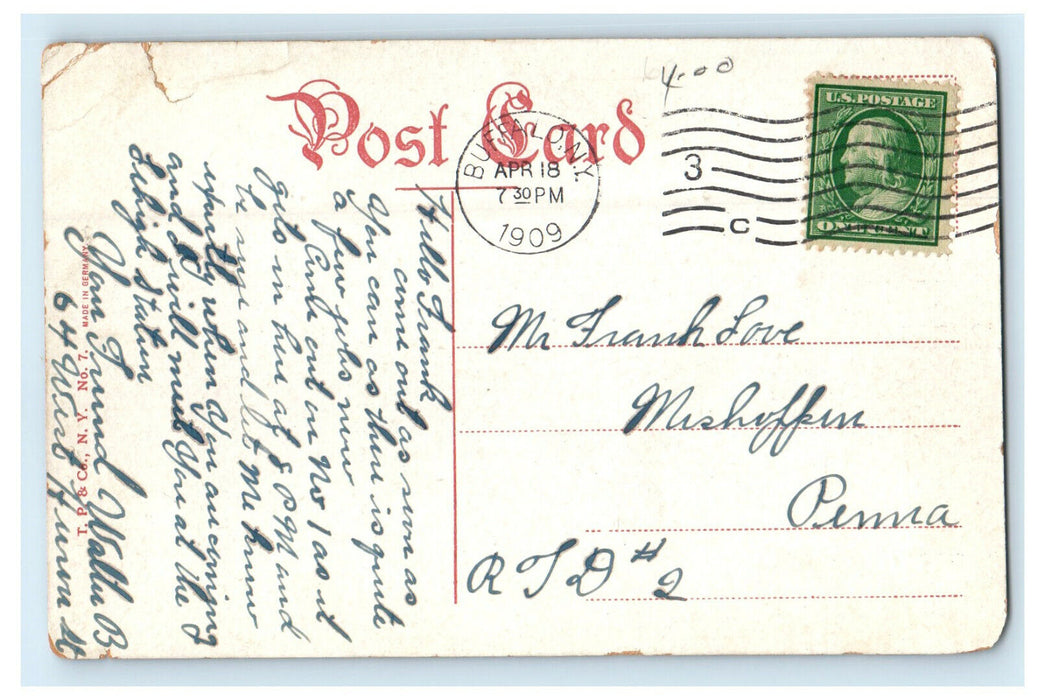 4.00
Post Card
BUFFALO, N.Y.
APR 18
7 30 PM
1909
3
C
U.S. POSTAGE
ONE CENT
Hello Frank
come out as soon as
You can as there is quite
a few jobs now
Come out on No 1 as it
gets in here at 8 PM and
be sure and let Me know
when You are coming
and I will meet You at the
Lehigh Station
Your Friend Walter B
64 West
T. P. & Co., N. Y. No. 7. MADE IN GERMANY
Mr Frank Love
Meshoppen
Penna
R F D # 2